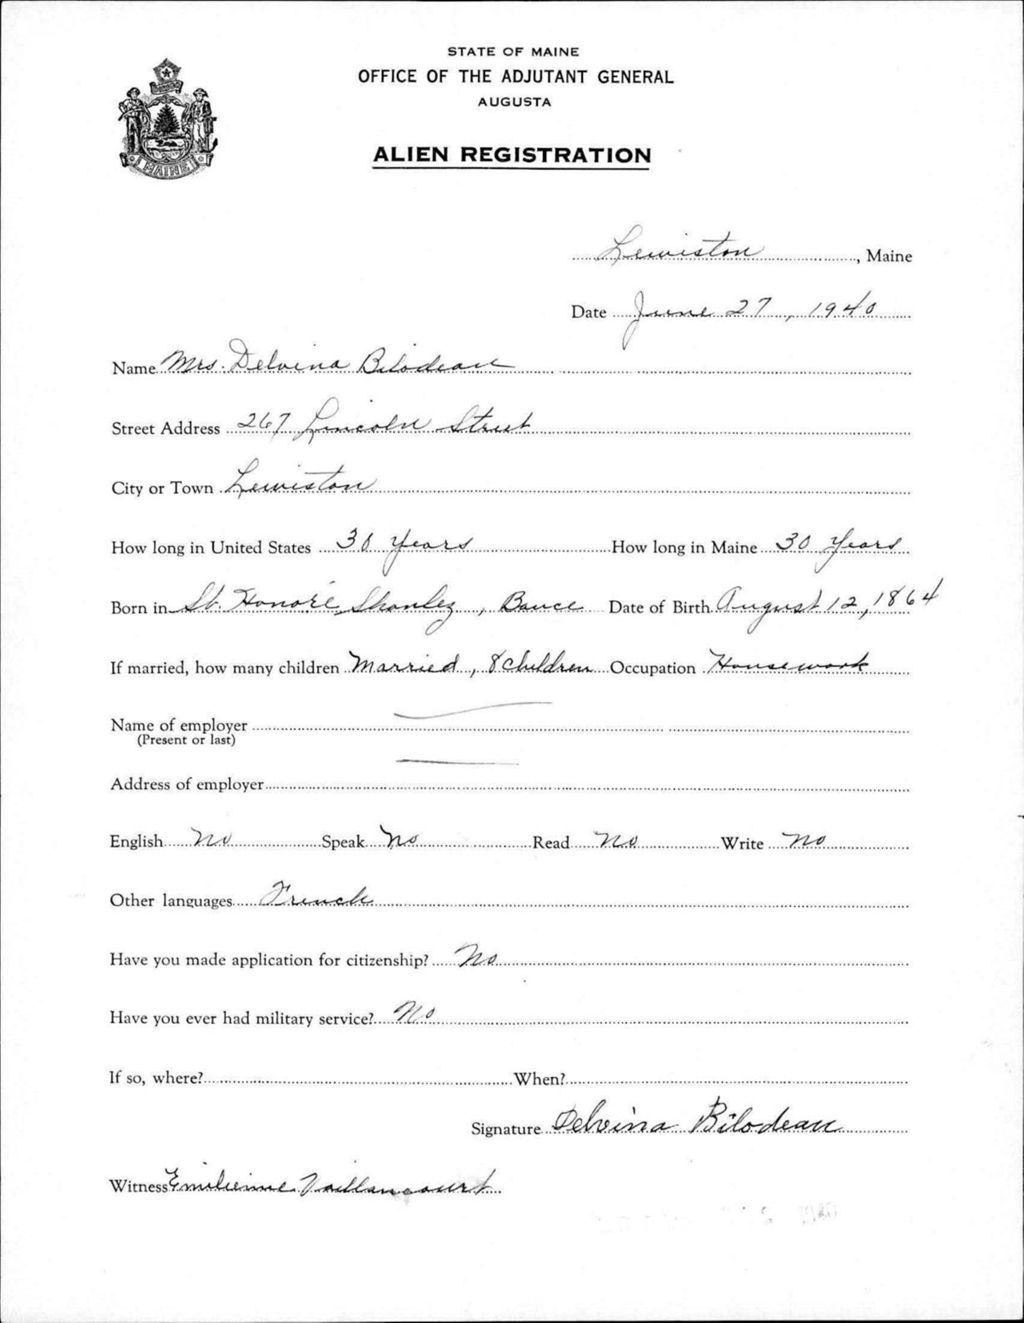 STATE OF MAINE
OFFICE OF THE ADJUTANT GENERAL
AUGUSTA
ALIEN REGISTRATION
MAINE
Lewiston, Maine
Date June 27, 1940
Name Mrs. Delvina Bilodeau
Street Address 267 Lincoln Street
City or Town Lewiston
How long in United States 30 years How long in Maine 30 years
Born in St. Honoré Shenley, Bauce Date of Birth August 12, 1864
If married, how many children Married, 8 children Occupation Housework
Name of employer
(Present or last)
Address of employer
English No Speak No Read No Write No
Other languages French
Have you made application for citizenship? No
Have you ever had military service? No
If so, where? When?
Signature Delvina Bilodeau
Witness Emilienne Vaillancourt